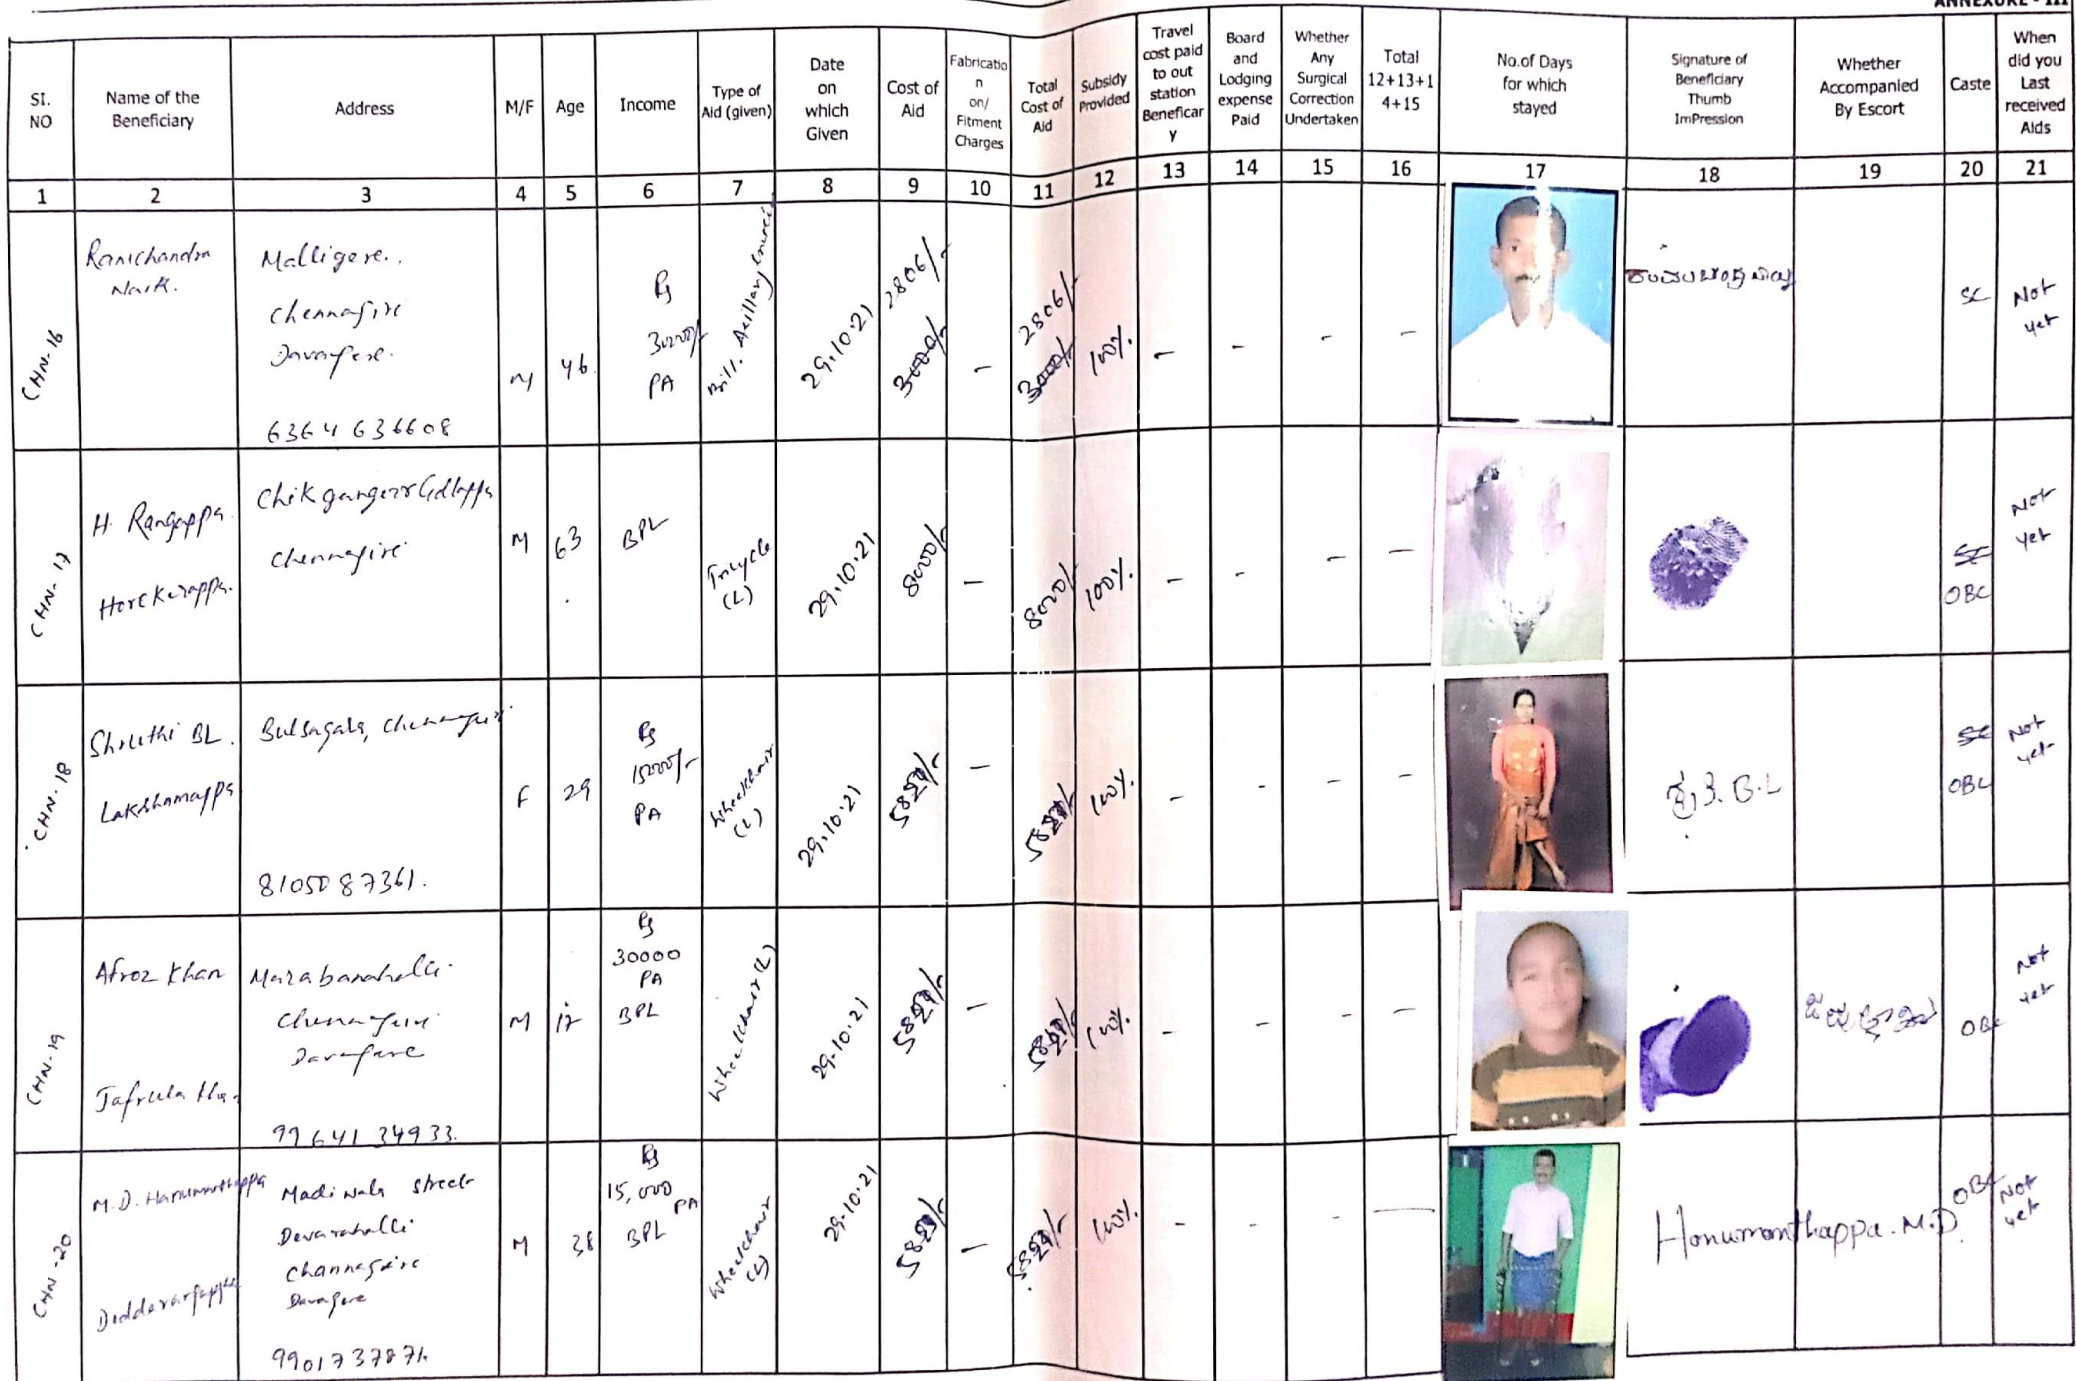 ANNEXURE - III
SI. NO
Name of the Beneficiary
Address
M/F
Age
Income
Type of Aid (given)
Date on which Given
Cost of Aid
Fabricatio n on/ Fitment Charges
Total Cost of Aid
Subsidy Provided
Travel cost paid to out station Beneficar y
Board and Lodging expense Paid
Whether Any Surgical Correction Undertaken
Total 12+13+1 4+15
No.of Days for which stayed
Signature of Beneficiary Thumb ImPression
Whether Accompanied By Escort
Caste
When did you Last received Aids
1 2 3 4 5 6 7 8 9 10 11 12 13 14 15 16 17 18 19 20 21
CHN-16
Ramchandra
Naik.
Malligere.
Chennagire
Davangere.
6364636608
M
46
Rs
30000/-
PA
29.10.21
2806/-
3000/-
-
2806/-
3000/-
100%
- - - -
SC
Not
yet
CHN-17
H. Rangappa
Chennagire
M
63
BPL
Tricycle
(L)
29.10.21
8000/-
-
8000/-
100%
- - - -
SC
OBC
Not
yet
CHN-18
Shruthi BL.
Lakshamappa
8105087361.
F
29
Rs
15000/-
PA
Wheelchair
(L)
29.10.21
-
100%
- - - -
B.L
SC
OBC
Not
yet
CHN-19
Afroz Khan
Marabanahalli
Chennagiri
Davangere
9964134933.
M
17
Rs
30000
PA
BPL
Wheelchair (L)
29.10.21
-
100%
- - - -
OBC
Not
yet
CHN-20
M.D. Hanumanthappa
Madiwala street
Devarahalli
Channagire
Davangere
M
38
Rs
15,000
PA
BPL
Wheelchair
(L)
29.10.21
-
100%
- - - -
Hanumanthappa.M.D
OBC
Not
yet